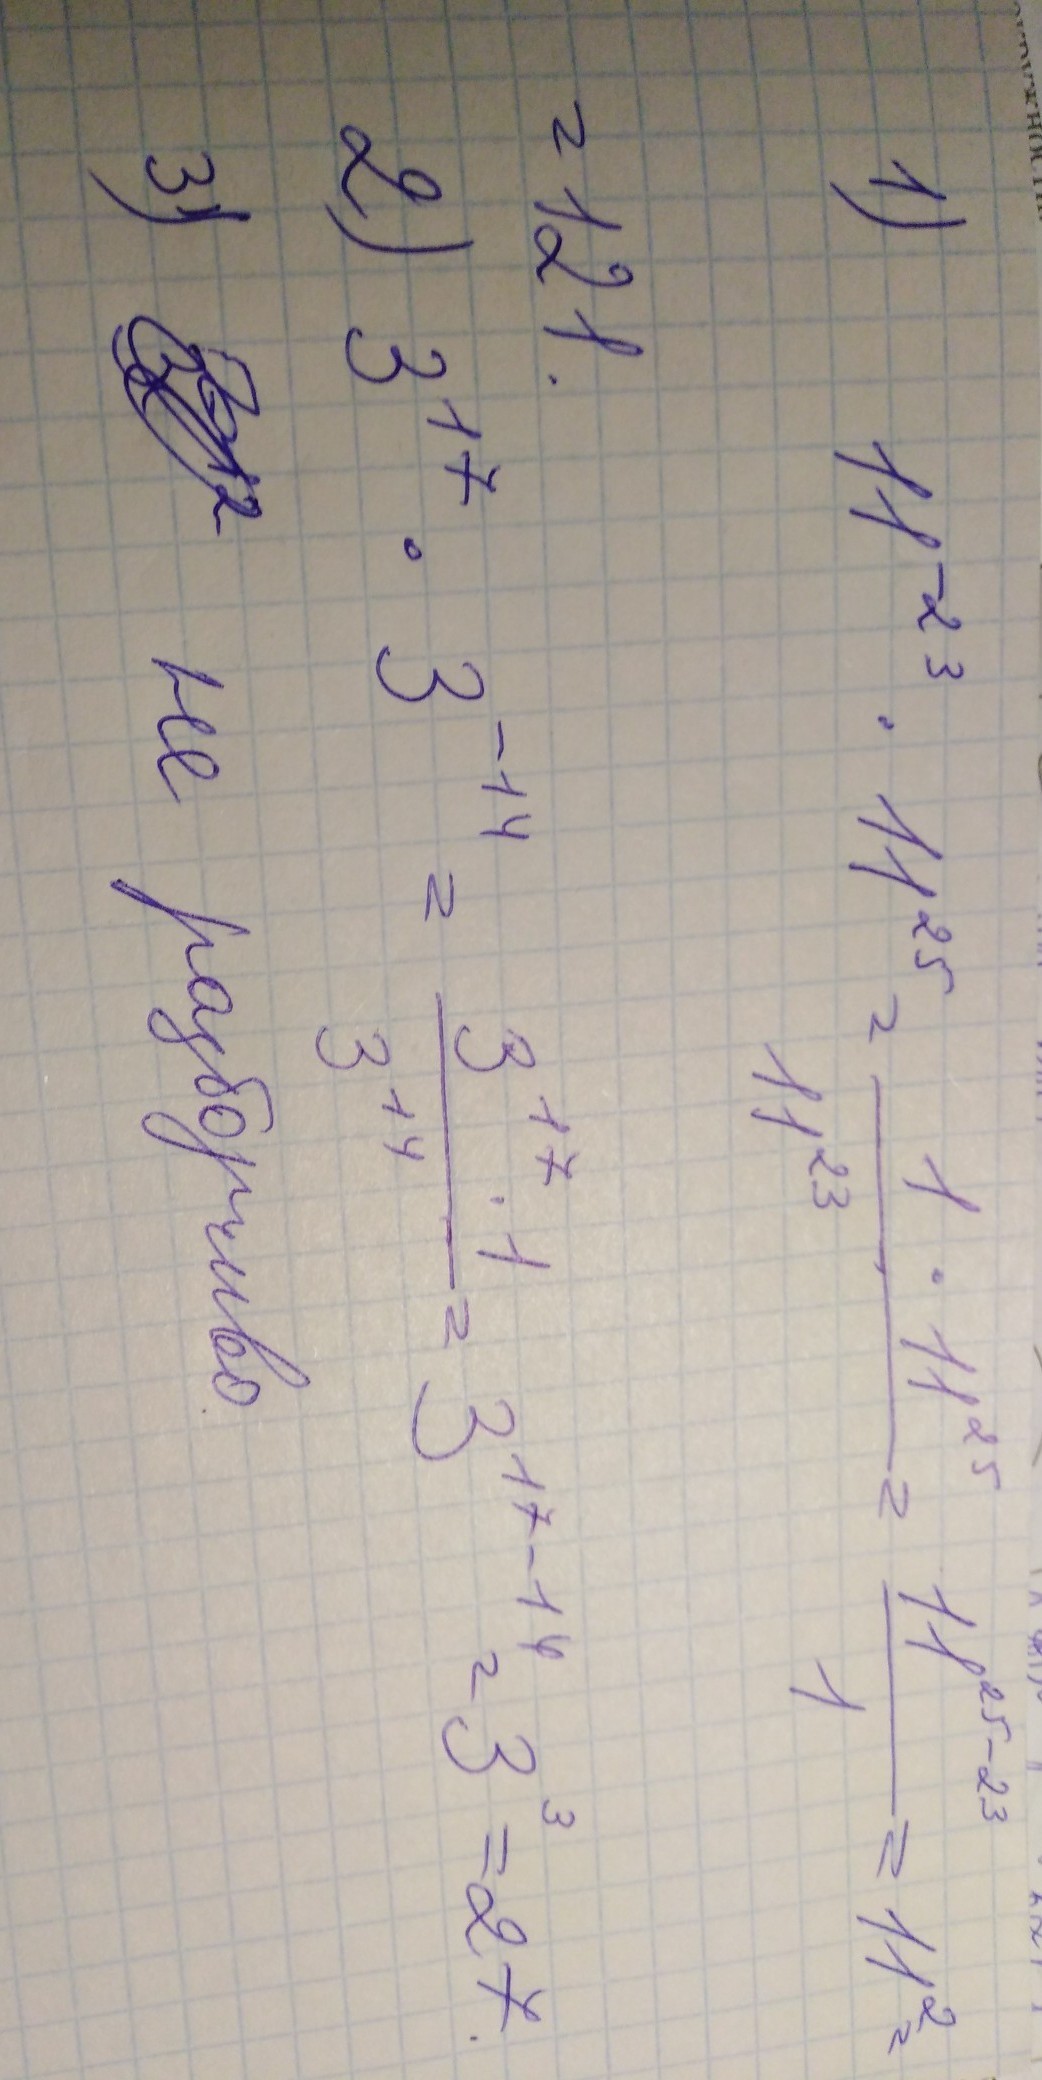 1) 11⁻²³ · 11²⁵ = (1 · 11²⁵)/11²³ = 11²⁵⁻²³/1 = 11² =
= 121.
2) 3¹⁷ · 3⁻¹⁴ = (3¹⁷ · 1)/3¹⁴ = 3¹⁷⁻¹⁴ = 3³ = 27.
3) не разборчиво